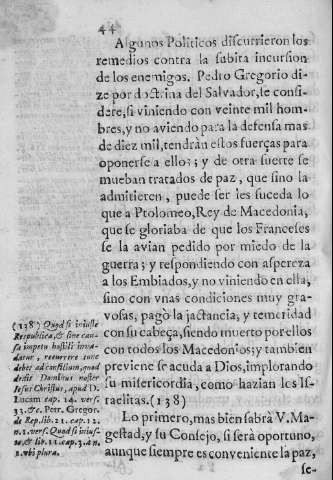 44
Algunos Politicos discurrieron los
remedios contra la subita incursion
de los enemigos. Pedro Gregorio di-
ze por doctrina del Salvador, se consi-
dere, si viniendo con veinte mil hom-
bres, y no aviendo para la defensa mas
de diez mil, tendràn estos fuerças para
oponerse a ellos; y de otra suerte se
mueban tratados de paz, que sino la
admitieren, puede ser les suceda lo
que a Ptolomeo, Rey de Macedonia,
que se gloriaba de que los Franceses
se la avian pedido por miedo de la
guerra; y respondiendo con aspereza
a los Embiados, y no viniendo en ella,
sino con vnas condiciones muy gra-
vosas, pagò la jactancia, y temeridad
con su cabeça, siendo muerto por ellos
con todos los Macedonios; y tambien
previene se acuda a Dios, implorando
su misericordia, como hazian los Is-
raelitas. (138)
Lo primero, mas bien sabrà V. Ma-
gestad, y su Consejo, si serà oportuno,
aunque siempre es conveniente la paz,
se-
(138) Quod si iniuste
Respublica, & sine cau-
sa impetu hostili inva-
datur, recurrere tunc
debet ad consilium, quod
dedit Dominus noster
Iesus Christus, apud D.
Lucam cap. 14. vers.
33. &c. Petr. Gregor.
de Rep. lib. 21. cap. 12.
n. 1. vers. Quod si inius-
te, & lib. 11. cap. 3. n.
2. vbi plura.